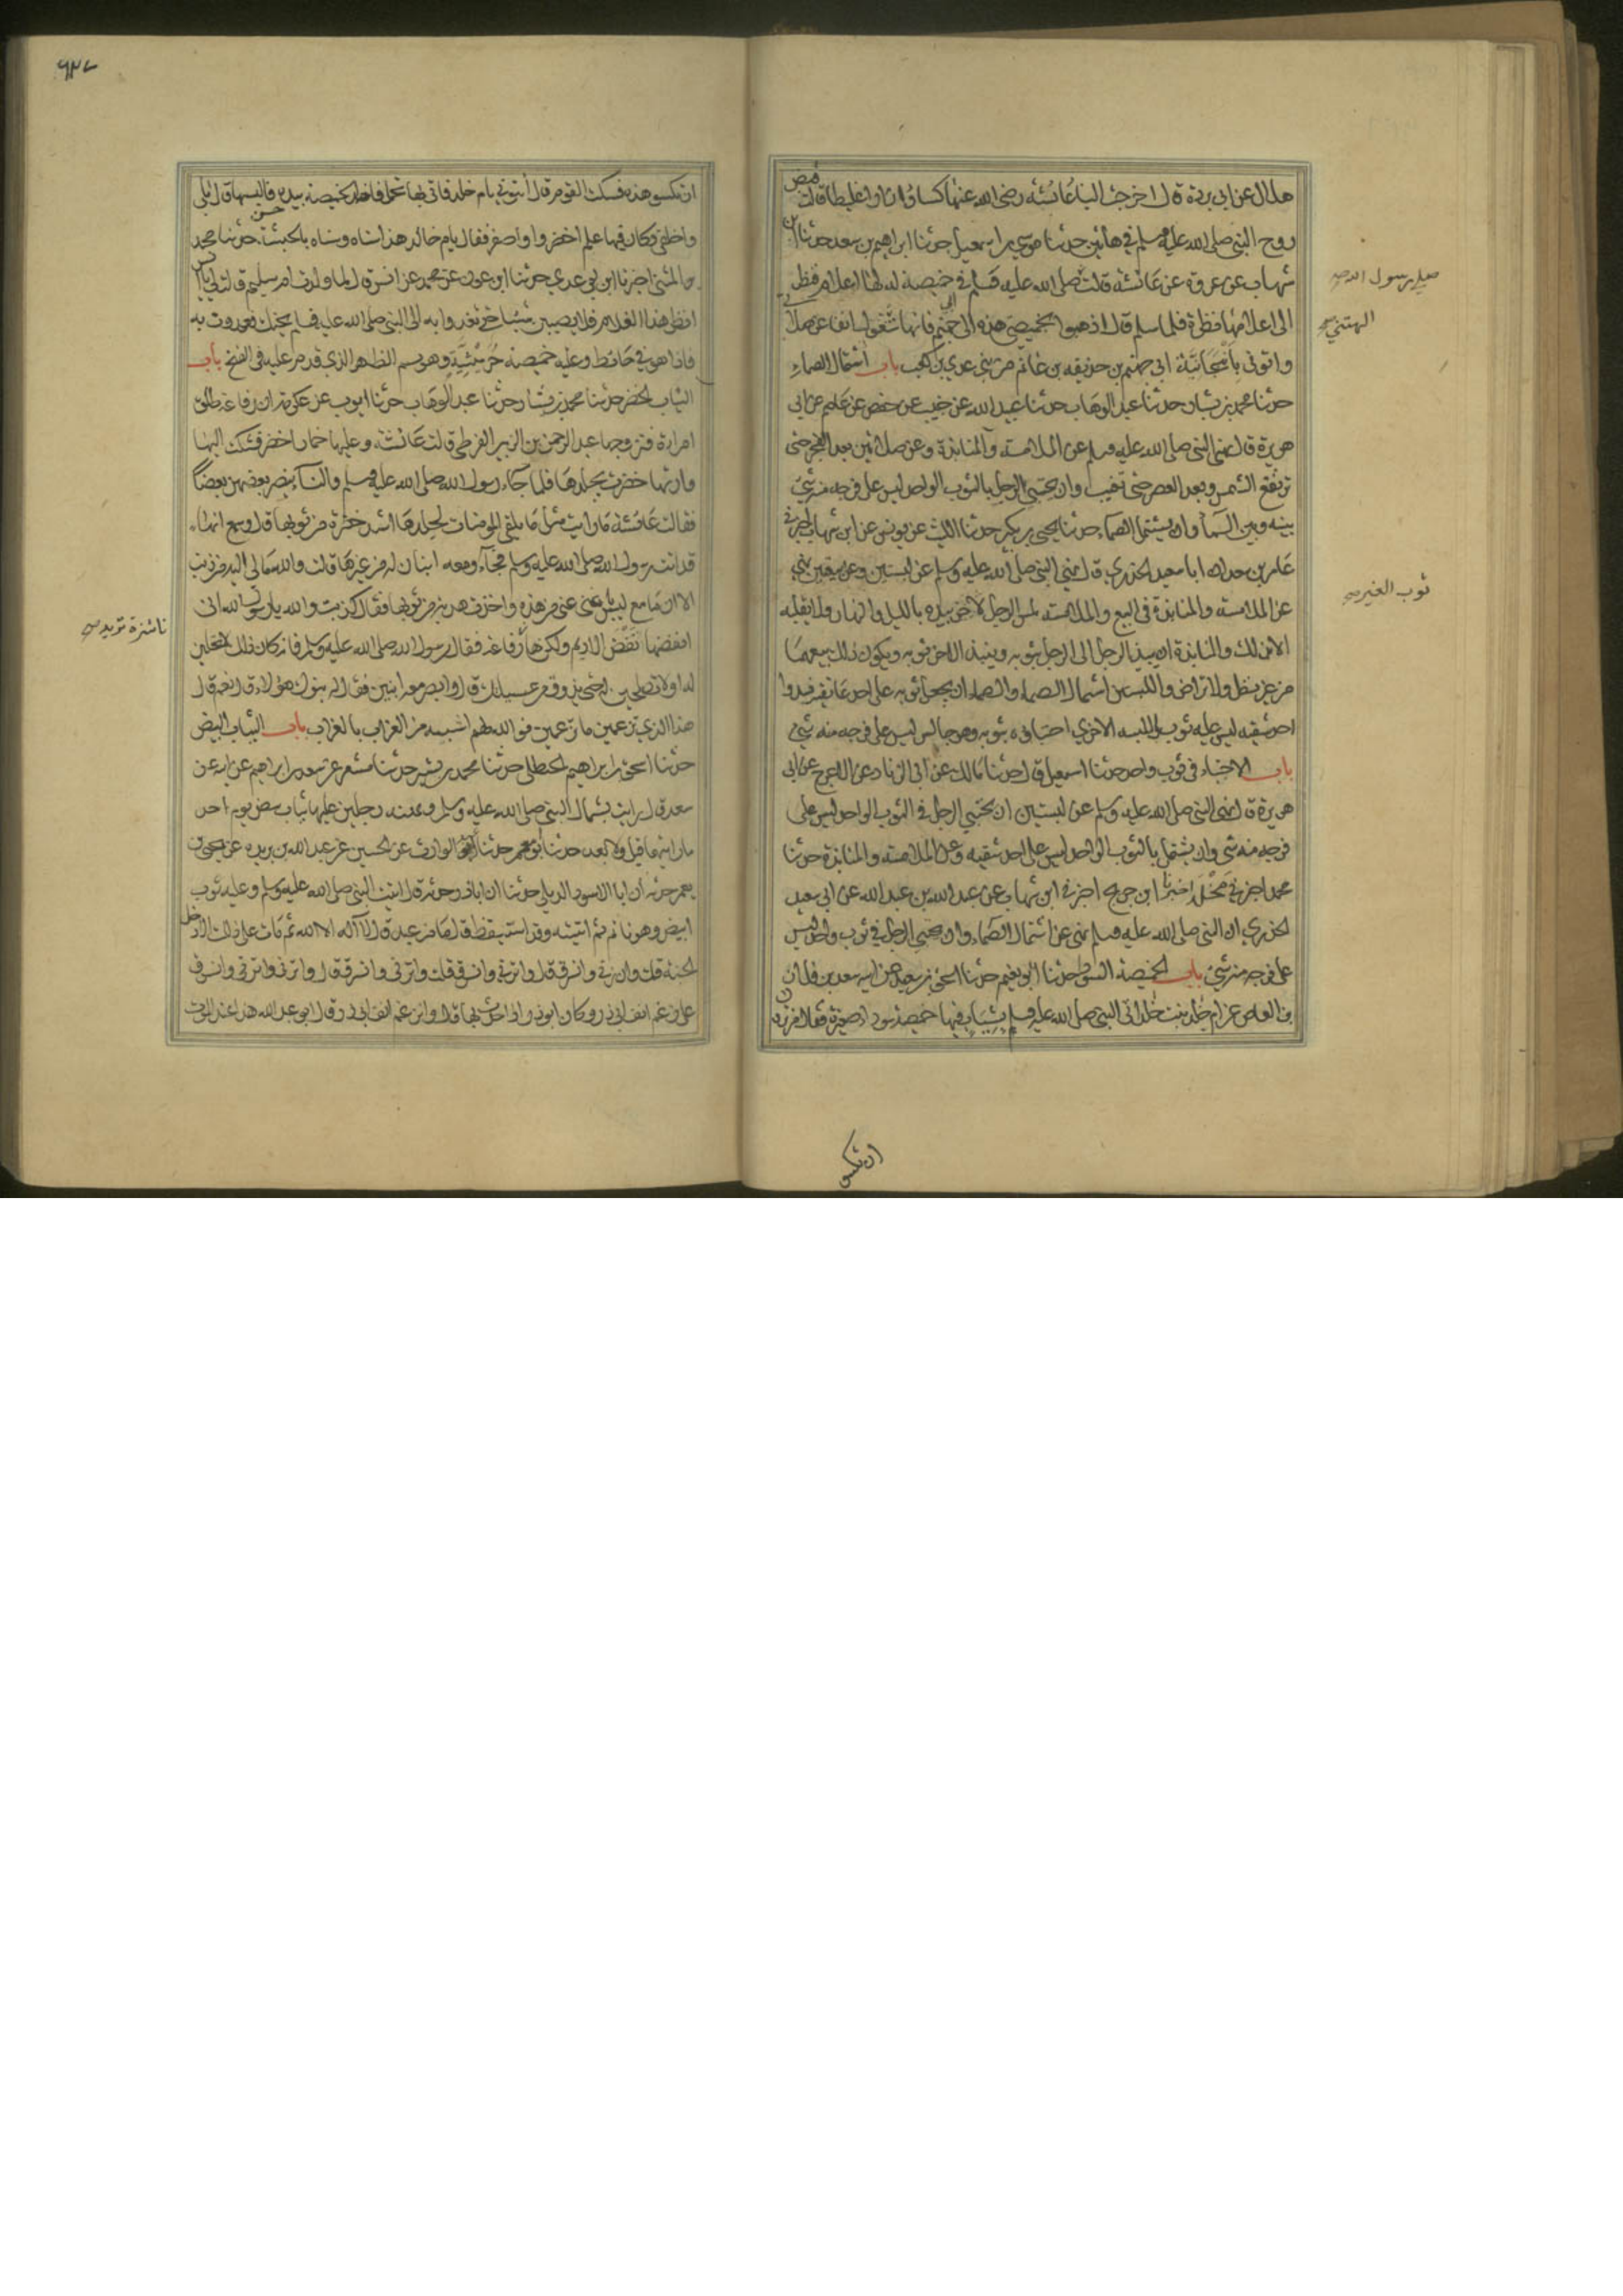 هلال عن ابي بردة قال اخرجت الينا عائشة رضي الله عنها كساء وازارا غليظا قالت قبض
روح النبي صلى الله عليه وسلم في هذين حدثنا موسى بن اسمعيل حدثنا ابراهيم بن سعد حدثنا ابن
شهاب عن عروة عن عائشة قالت صلى الله عليه وسلم في خميصة له لها اعلام فنظر
الى اعلامها نظرة فلما سلم قال اذهبوا بخميصتي هذه الى ابي جهم فانها شغلتني انفا عن صلاتي
واتوني بانبجانية ابي جهم بن حذيفة بن غانم من بني عدي بن كعب باب اشتمال الصماء
حدثنا محمد بن بشار حدثنا عبد الوهاب حدثنا عبيد الله عن خبيب عن حفص بن عاصم عن ابي
هريرة قال نهى النبي صلى الله عليه وسلم عن الملامسة والمنابذة وعن صلاتين بعد الفجر حتى
ترتفع الشمس وبعد العصر حتى تغيب وان يحتبي الرجل بالثوب الواحد ليس على فرجه منه شئ
بينه وبين السماء وان يشتمل الصماء حدثنا يحيى بن بكير حدثنا الليث عن يونس عن ابن شهاب اخبرني
عامر بن سعد ان ابا سعيد الخدري قال نهى النبي صلى الله عليه وسلم عن لبستين وعن بيعتين نهى
عن الملامسة والمنابذة في البيع والملامسة لمس الرجل ثوب الاخر بيده بالليل والنهار ولا يقلبه
الا بذلك والمنابذة ان ينبذ الرجل الى الرجل بثوبه وينبذ الاخر ثوبه ويكون ذلك بيعهما
من غير نظر ولا تراض واللبستين اشتمال الصماء والصماء ان يجعل ثوبه على احد عاتقيه فيبدوا
احد شقيه ليس عليه ثوب واللبسة الاخرى احتباؤه بثوبه وهو جالس ليس على فرجه منه شئ
باب الاحتباء في ثوب واحد حدثنا اسمعيل قال حدثنا مالك عن ابي الزناد عن الاعرج عن ابي
هريرة قال نهى النبي صلى الله عليه وسلم عن لبستين ان يحتبي الرجل في الثوب الواحد ليس على
فرجه منه شئ وان يشتمل بالثوب الواحد ليس على احد شقيه وعن الملامسة والمنابذة حدثنا
محمد اخبرني مخلد اخبرنا ابن جريج اخبرني ابن شهاب عن عبيد الله بن عبد الله عن ابي سعيد
الخدري ان النبي صلى الله عليه وسلم نهى عن اشتمال الصماء وان يحتبي الرجل في ثوب واحد ليس
على فرجه منه شئ باب الخميصة السوداء حدثنا ابو نعيم حدثنا اسحق بن سعيد عن ابيه سعيد بن فلان
بن العاص عن ام خالد بنت خالد اتي النبي صلى الله عليه وسلم بثياب فيها خميصة سوداء صغيرة فقال من ترون
صلى رسول الله
ثوب الغير
ان نكسو
٦٣٨
ان نكسو هذه فسكت القوم قال ائتوني بام خالد فاتي بها تحمل فاخذ الخميصة بيده فالبسها قال ابلي
واخلقي وكان فيها علم اخضر او اصفر فقال يا ام خالد هذا سناه وسناه بالحبشة حسن حدثنا محمد
بن المثنى اخبرنا ابن ابي عدي حدثنا ابن عون عن محمد عن انس قال لما ولدت ام سليم قالت لي يا انس
انظر هذا الغلام فلا يصيبن شيئا حتى تغدوا به الى النبي صلى الله عليه وسلم يحنكه فغدوت به
فاذا هو في حائط وعليه خميصة حريثية وهو يسم الظهر الذي قدم عليه في الفتح باب
الثياب الخضر حدثنا محمد بن بشار حدثنا عبد الوهاب حدثنا ايوب عن عكرمة ان رفاعة طلق
امراته فتزوجها عبد الرحمن بن الزبير القرظي قالت عائشة وعليها خمار اخضر فشكت اليها
وارتها خضرة بجلدها فلما جاء رسول الله صلى الله عليه وسلم والنساء ينصر بعضهن بعضا
فقالت عائشة ما رايت مثل ما يلقى المومنات لجلدها اشد خضرة من ثوبها قال وسمع انها
قد اتت رسول الله صلى الله عليه وسلم فجاء ومعه ابنان له من غيرها قالت والله ما لي اليه من ذنب
الا ان ما معه ليس باغنى عني من هذه واخذت هدبة من ثوبها فقال كذبت والله يا رسول الله اني
انفضها نفض الاديم ولكنها رفاعة فقال رسول الله صلى الله عليه وسلم فان كان ذلك لم تحلين
له او لا تصلحين له حتى يذوق من عسيلتك قال وابصر معه ابنين فقال له بنوك هؤلاء قال نعم قال
هذا الذي تزعمين ما تزعمين فوالله لهم اشبه به من الغراب بالغراب باب الثياب البيض
حدثنا اسحق بن ابراهيم الحنظلي حدثنا محمد بن بشر حدثنا مسعر عن سعد بن ابراهيم عن ابيه عن
سعد قال رايت بشمال النبي صلى الله عليه وسلم ويمينه رجلين عليهما ثياب بيض يوم احد
ما رايتهما قبل ولا بعد حدثنا ابو معمر حدثنا عبد الوارث عن الحسين عن عبد الله بن بريدة عن يحيى بن
يعمر حدثه ان ابا الاسود الديلي حدثنا ان ابا ذر حدثه قال اتيت النبي صلى الله عليه وسلم وعليه ثوب
ابيض وهو نائم ثم اتيته وقد استيقظ قال ما من عبد قال لا اله الا الله ثم مات على ذلك الا دخل
الجنة قلت وان زنى وان سرق قال وان زنى وان سرق قلت وان زنى وان سرق قال وان زنى وان سرق
على رغم انف ابي ذر وكان ابو ذر اذا حدث بهذا قال وان رغم انف ابي ذر قال ابو عبد الله هذا عند الموت
ناشزة تريد